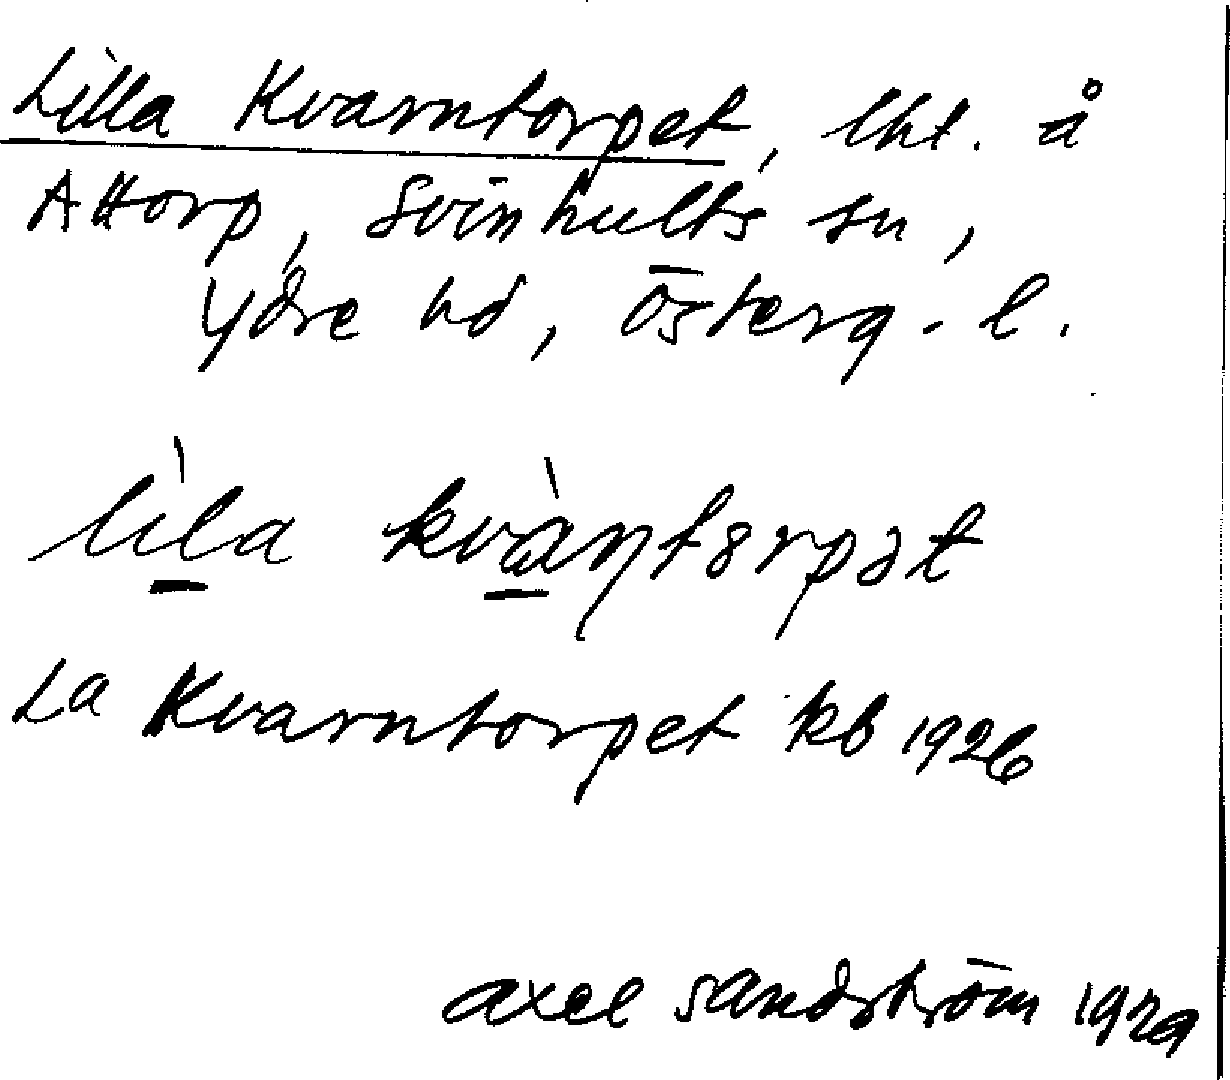 Lilla Kvarntorpet, lht. å
Attorp, Svinhults sn,
Ydre hd, Österg. l.
lìla kvàɳtorpət
La Kvarntorpet kb 1926
Axel Sandström 1929